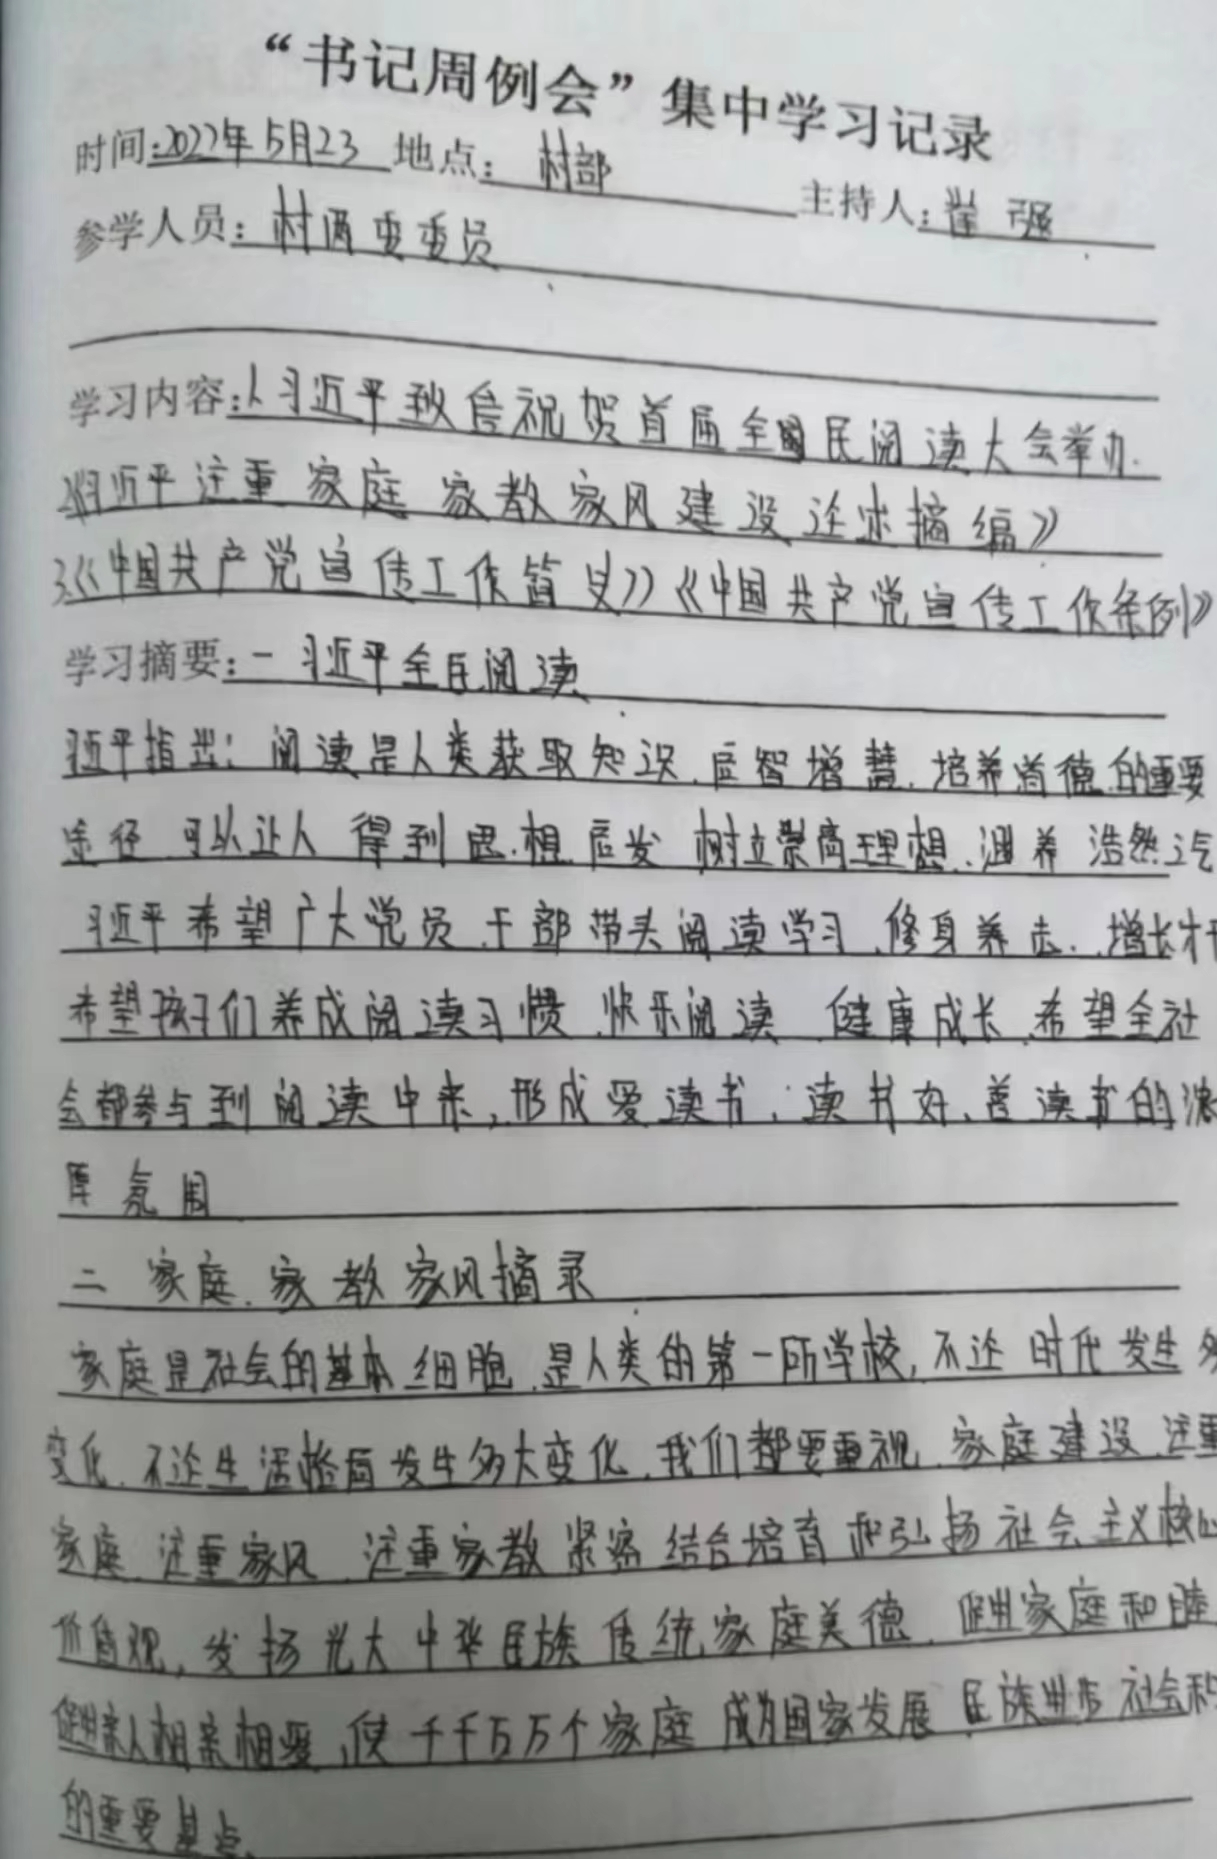 “书记周例会”集中学习记录
时间:2022年5月23 地点: 村部 主持人: 崔强
参学人员: 村两委委员
学习内容:1习近平致信祝贺首届全国民阅读大会举办.
2《习近平注重家庭家教家风建设论述摘编》
3《中国共产党宣传工作简史》《中国共产党宣传工作条例》
学习摘要: 一 习近平全民阅读
习近平指出: 阅读是人类获取知识.启智增慧.培养道德的重要
途径 可以让人得到思想启发 树立崇高理想.涵养浩然之气
习近平希望广大党员干部带头阅读学习.修身养志.增长才干
希望孩子们养成阅读习惯.快乐阅读.健康成长.希望全社
会都参与到阅读中来,形成爱读书,读书好、善读书的浓
厚氛围
二 家庭.家教家风摘录
家庭是社会的基本细胞.是人类的第一所学校,不论时代发生多
变化.不论生活格局发生多大变化.我们都要重视.家庭建设.注重
家庭.注重家风.注重家教紧密结合培育和弘扬社会主义核心
价值观,发扬光大中华民族传统家庭美德.促进家庭和睦
促进亲人相亲相爱.使千千万万个家庭成为国家发展 民族进步 社会和
的重要基点.